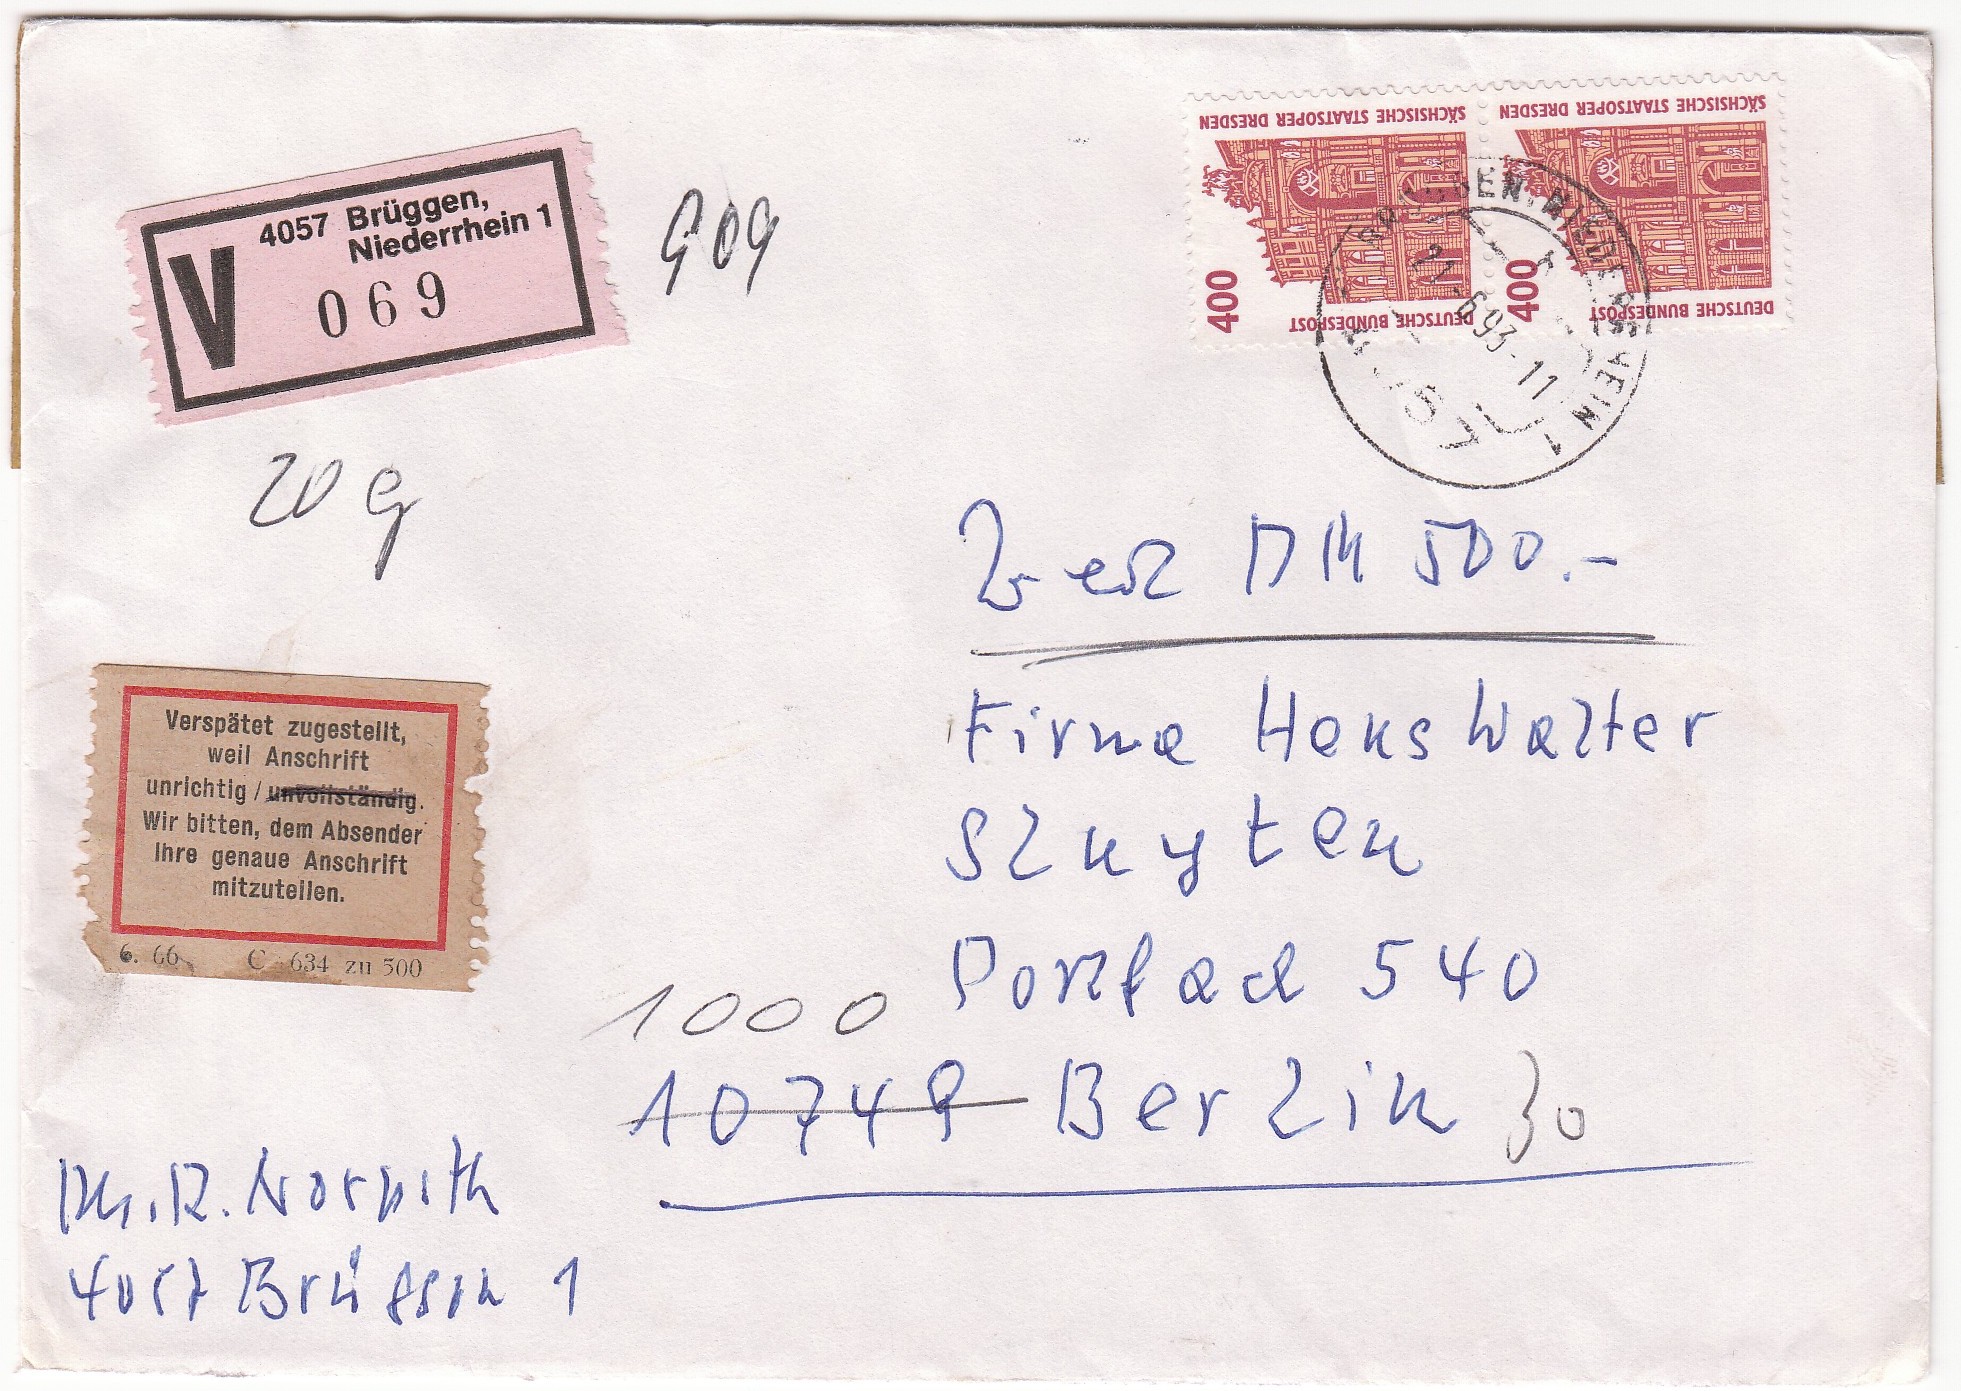 4057 Brüggen,
Niederrhein 1
V
069
SÄCHSISCHE STAATSOPER DRESDEN
400
DEUTSCHE BUNDESPOST
SÄCHSISCHE STAATSOPER DRESDEN
400
DEUTSCHE BUNDESPOST
BRÜGGEN, NIEDERRHEIN 1
21.-6.93-11
4057
20 g
Wert DM 500.-
Firma Hans Walter
Postfach 540
1000
10749 Berlin 30
Verspätet zugestellt,
weil Anschrift
unrichtig / unvollständig.
Wir bitten, dem Absender
Ihre genaue Anschrift
mitzuteilen.
6. 66 C 634 zu 500
4057 Brüggen 1